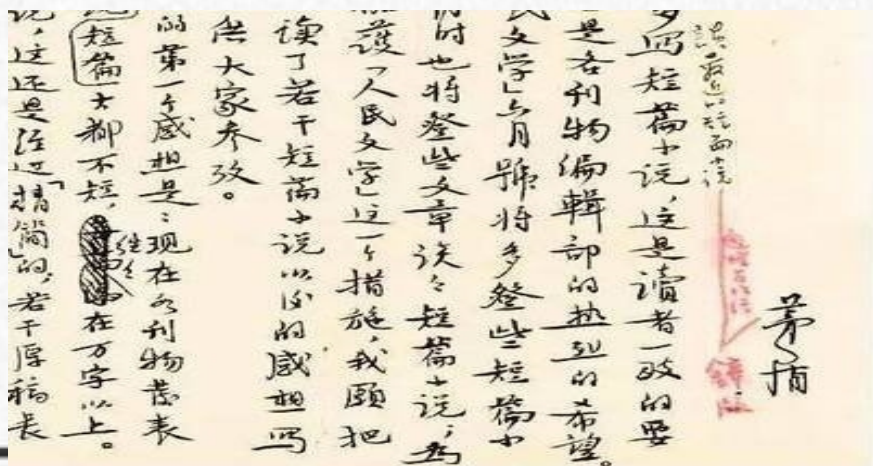 茅盾
談最近的短篇小说
多写短篇小说,这是讀者一致的要
是各刊物编輯部的热烈的希望。
民文学」六月號将多登些短篇小
时也将登些文章谈々短篇小说,为
護「人民文学」这一个措施,我願把
读了若干短篇小说以後的感想写
供大家参攷。
的第一个感想是:现在各刊物發表
短篇大都不短,往々在万字以上。
说,这还是经过「精简」的,若干原稿长